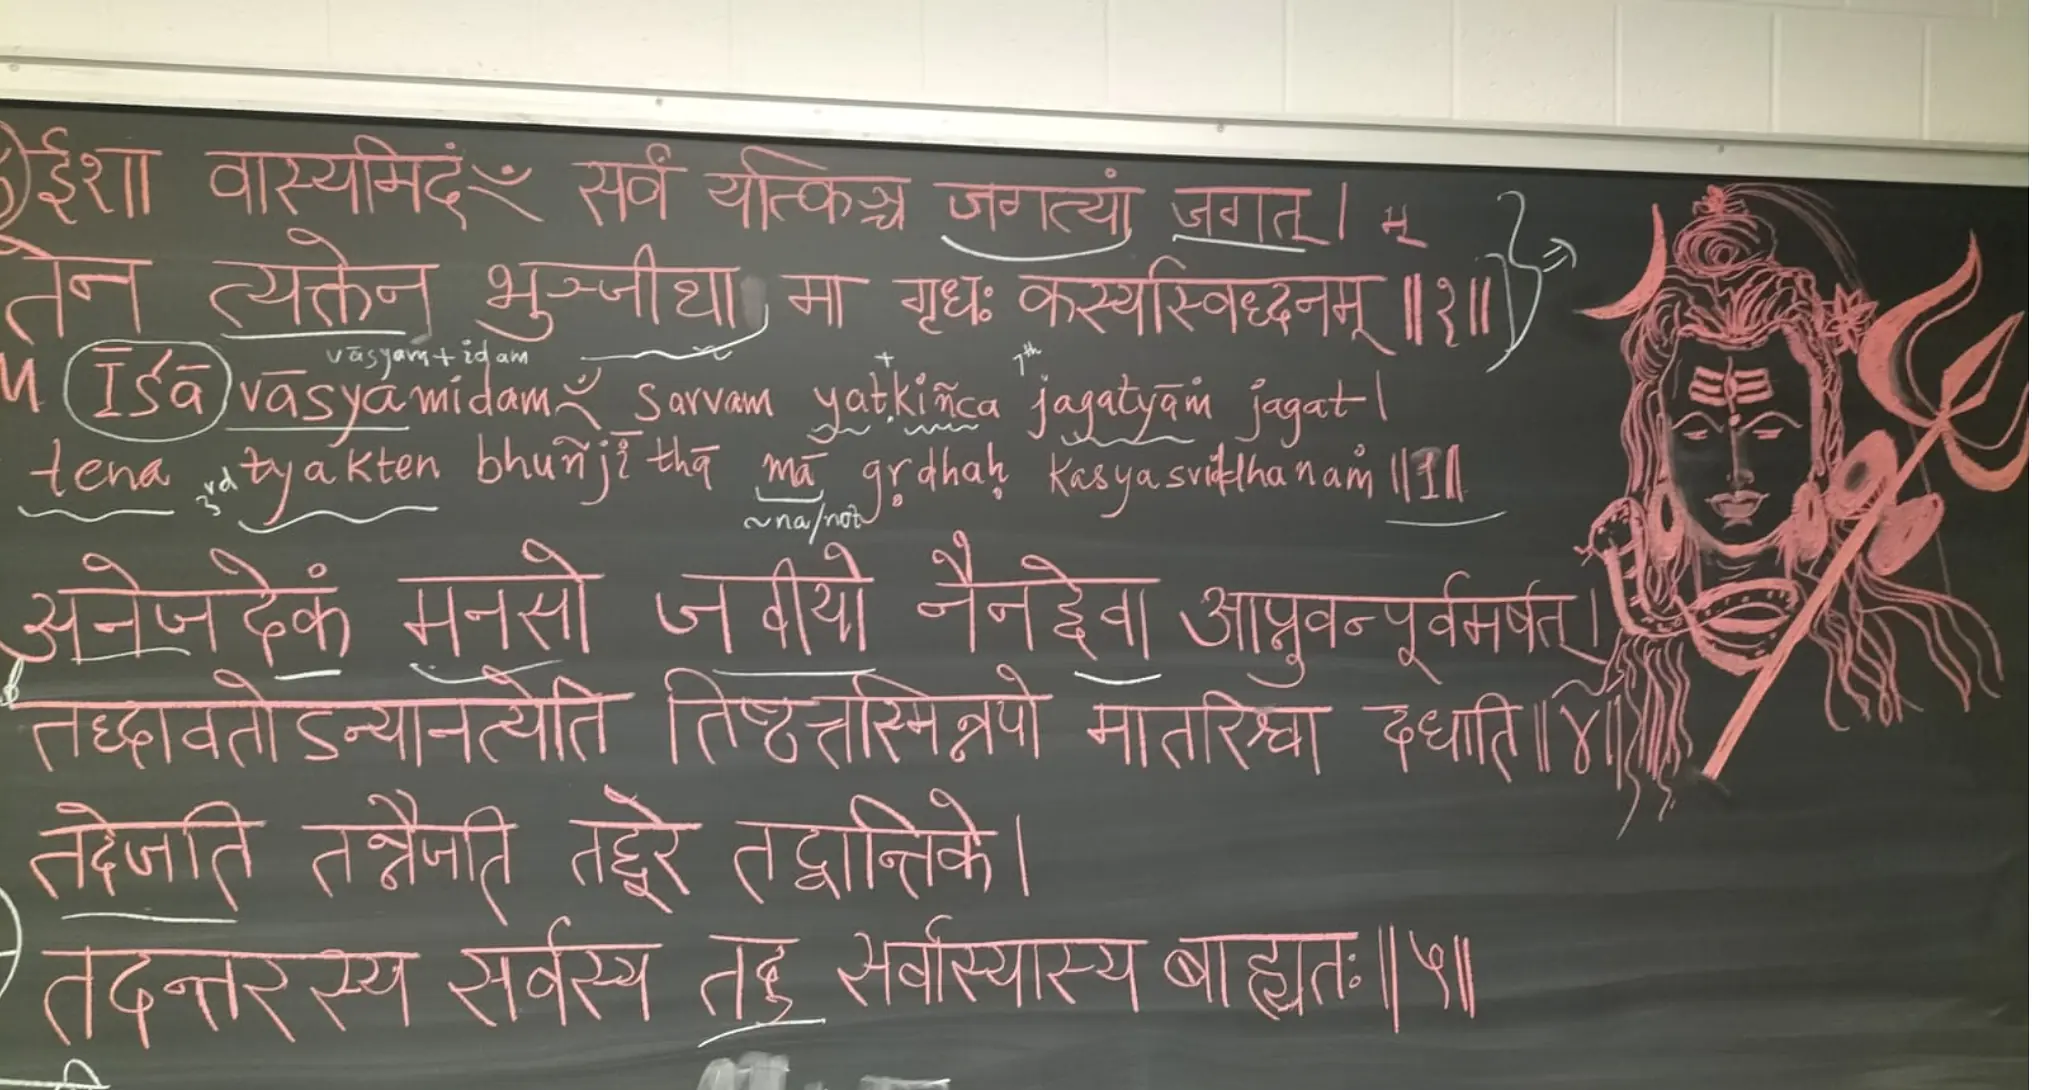 ईशा वास्यमिदंँ सर्वं यत्किञ्च जगत्यां जगत् । म्
तेन त्यक्तेन भुञ्जीथा मा गृधः कस्यस्विध्दनम् ॥१॥
vāsyam+idam + 7th
Īśā vāsyamidamँ sarvam yatkiñca jagatyāṁ jagat|
tena 3rd tyakten bhuñjīthā mā gṛdhaḥ kasyasviddhanaṁ ||1||
~na/not
अनेजदेकं मनसो जवीयो नैनद्देवा आप्नुवन्पूर्वमर्षत् ।
तद्धावतोऽन्यानत्येति तिष्ठत्तस्मिन्नपो मातरिश्वा दधाति ॥४॥
तदेजति तन्नैजति तद्दूरे तद्वान्तिके ।
तदन्तरस्य सर्वस्य तदु सर्वास्यास्य बाह्यतः ॥५॥